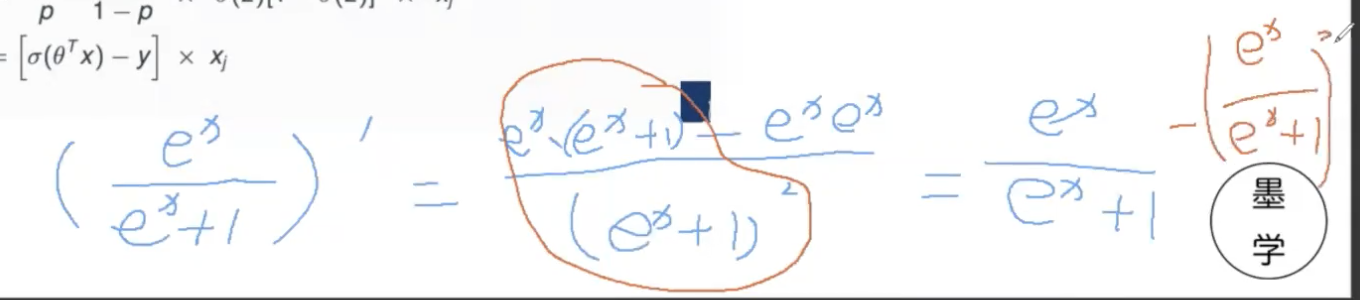 p 1 − p
= [σ(θᵀx) − y] × xⱼ
(e^x / (e^x + 1))′ = (e^x · (e^x + 1) − e^x e^x) / (e^x + 1)² = e^x / (e^x + 1) − (e^x / (e^x + 1))²
墨
学